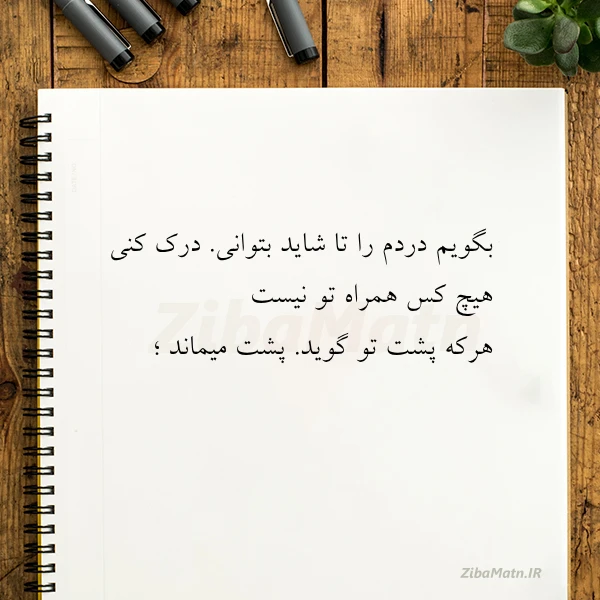 بگویم دردم را تا شاید بتوانی. درک کنی
هیچ کس همراه تو نیست
هرکه پشت تو گوید. پشت میماند ؛
ZibaMatn
ZibaMatn.IR